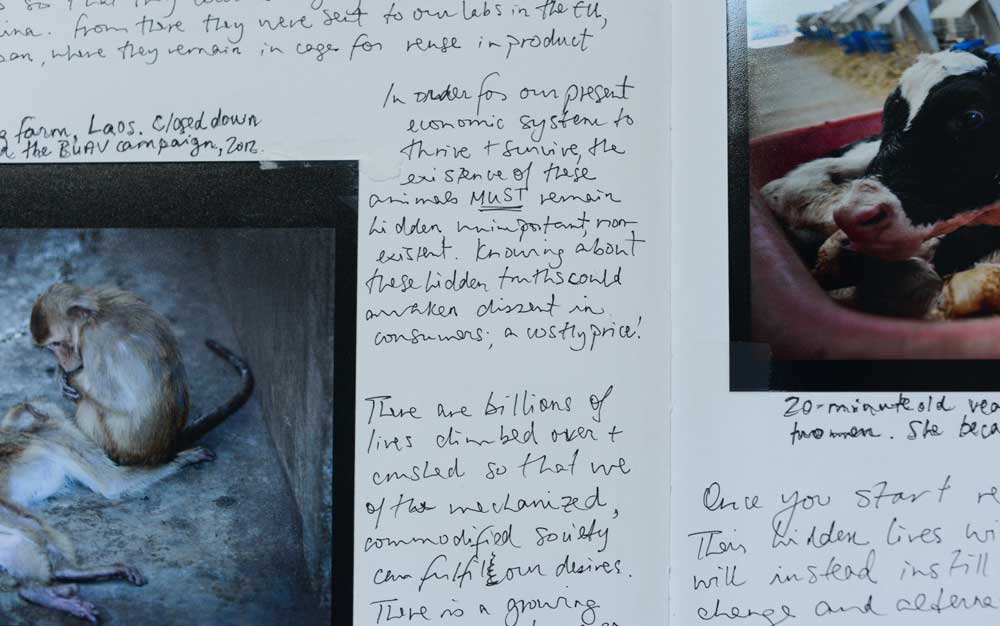 so that they could
ina. From there they were sent to our labs in the EU,
pan, where they remain in cages for reuse in product
g farm, Laos. Closed down
the BUAV campaign, 2012.
In order for our present
economic system to
thrive + survive, the
existence of these
animals MUST remain
hidden, unimportant, non-
existent. Knowing about
these hidden truths could
awaken dissent in
consumers; a costly price!
There are billions of
lives climbed over +
crushed so that we
of the mechanized,
commodified society
can fulfil our desires.
There is a growing
20-minute old vea
two men. She beca
Once you start re
Their hidden lives wi
will instead instill
change and alterna